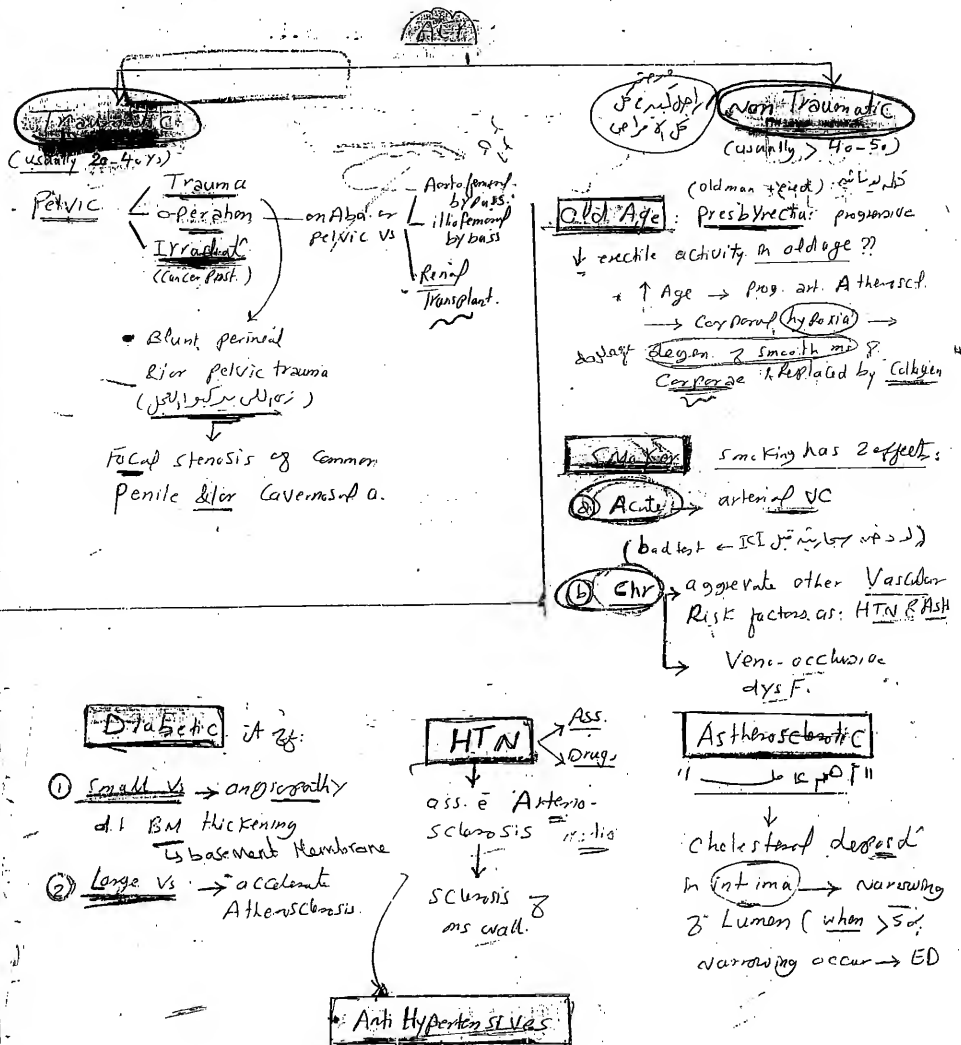 Traumatic
(usually 20-40 ys)
Pelvic
Trauma
operation
Irradiat^
(Cancer Prost.)
on Abd. or
pelvic Vs
Aortofemoral
by pass.
illiofemoral
by bass
Renal
Transplant.
• Blunt perineal
&/or pelvic trauma
↓
Focal stenosis of Common
Penile &/or Cavernosal a.
Non Traumatic
(usually > 40-50)
Old Age : Presbyrectia: progressive
↓ erectile activity in old age ??
* ↑ Age → Prog. art. Atheroscl.
→ Corporal hypoxia →
degen. of smooth ms of
Corporae & Replaced by Collagen
Smoker smoking has 2 effect:
(a) Acute → arterial VC
(bad test ← ICI قبل
(b) Chr → aggrevate other Vascular
Risk factors as: HTN & Ash
→ Veno-occlusive
dys F.
Diabetic
① Small Vs → angiopathy
d.t BM thickening
↳ basement Membrane
② Large Vs → accelerate
Atherosclerosis.
HTN
Ass.
Drugs
↓
ass. ē Arterio-
sclerosis
↓
sclerosis of
ms wall.
Astherosclerotic
↓
cholesterol deposit^
in intima → narrowing
of Lumen ( when > 50%
narrowing occur → ED
• Anti Hypertensives